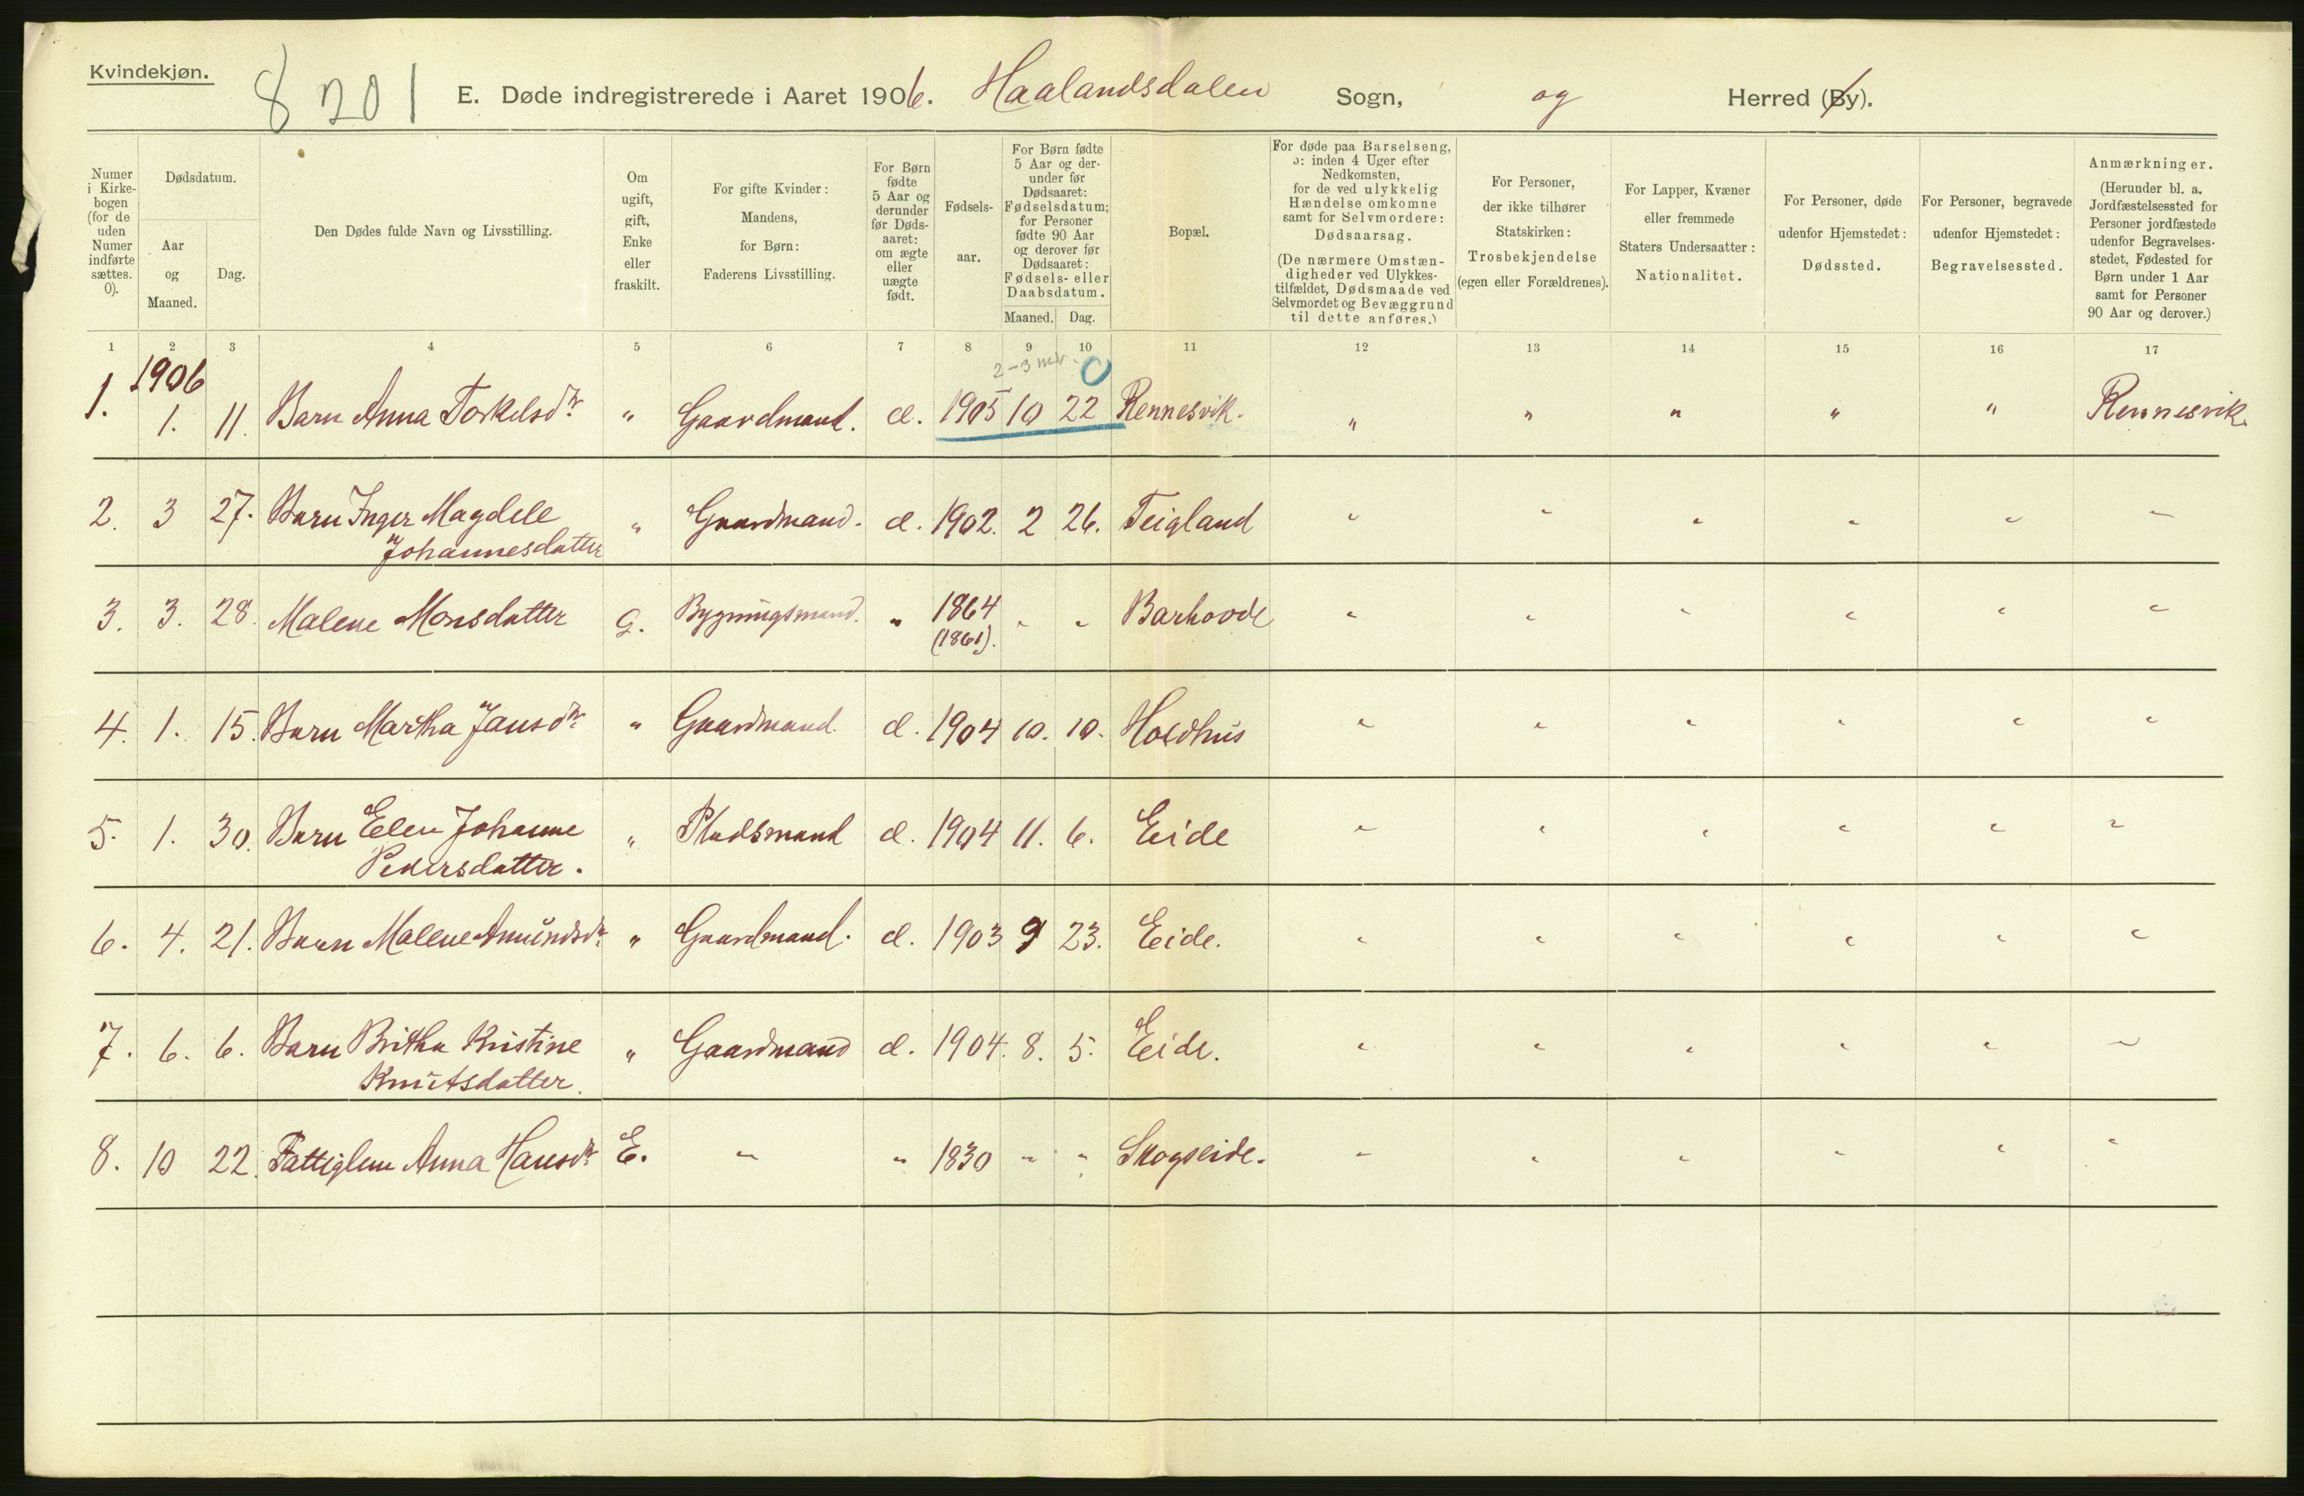 Kvindekjøn.
8 201
E. Døde indregistrerede i Aaret 1906. Haalandsdalen Sogn, og Herred (By).
Numer i Kirkebogen (for de uden Numer indførte sættes. 0).
Dødsdatum.
Aar og Maaned.
Dag.
Den Dødes fulde Navn og Livsstilling.
Om ugift, gift, Enke eller fraskilt.
For gifte Kvinder: Mandens, for Børn: Faderens Livsstilling.
For Børn fødte 5 Aar og derunder før Dødsaaret: om ægte eller uægte født.
Fødselsaar.
For Børn fødte 5 Aar og derunder før Dødsaaret: Fødselsdatum; for Personer fødte 90 Aar og derover før Dødsaaret: Fødsels- eller Daabsdatum.
Maaned. Dag.
Bopæl.
For døde paa Barselseng, ɔ: inden 4 Uger efter Nedkomsten, for de ved ulykkelig Hændelse omkomne samt for Selvmordere: Dødsaarsag. (De nærmere Omstændigheder ved Ulykkestilfældet, Dødsmaade ved Selvmordet og Bevæggrund til dette anføres.)
For Personer, der ikke tilhører Statskirken: Trosbekjendelse (egen eller Forældrenes).
For Lapper, Kvæner eller fremmede Staters Undersaatter: Nationalitet.
For Personer, døde udenfor Hjemstedet: Dødssted.
For Personer, begravede udenfor Hjemstedet: Begravelsessted.
Anmærkninger. (Herunder bl. a. Jordfæstelsessted for Personer jordfæstede udenfor Begravelsesstedet, Fødested for Børn under 1 Aar samt for Personer 90 Aar og derover.)
1 2 3 4 5 6 7 8 9 10 11 12 13 14 15 16 17
1906 2-3 mr. 0
1. 1. 11. Barn Anna Torkelsdr " Gaardmand. æ. 1905 10 22 Rennesvik. " " " " " Rennesvik.
2. 3 27. Barn Inger Magdele " Gaardmand. æ. 1902. 2 26. Teigland " " " " " "
Johannesdatter
3. 3. 28. Malene Monsdatter G. Bygningsmand. " 1864 " " Barhovde " " " " " "
(1861).
4. 1. 15. Barn Martha Jansdr " Gaardmand. æ. 1904 10. 10. Holdhus " " " " " "
5. 1. 30. Barn Elen Johanne " Pladsmand æ. 1904 11. 6. Eide " " " " " "
Pedersdatter.
6. 4. 21. Barn Malene Amundsdr " Gaardmand. æ. 1903 9 23. Eide. " " " " " "
7. 6. 6. Barn Britha Kristine " Gaardmand æ. 1904. 8. 5. Eide. " " " " " "
Knutsdatter.
8. 10 22. Fattiglem Anna Hansdr E. " " 1830 " " Skogseide. " " " " " "